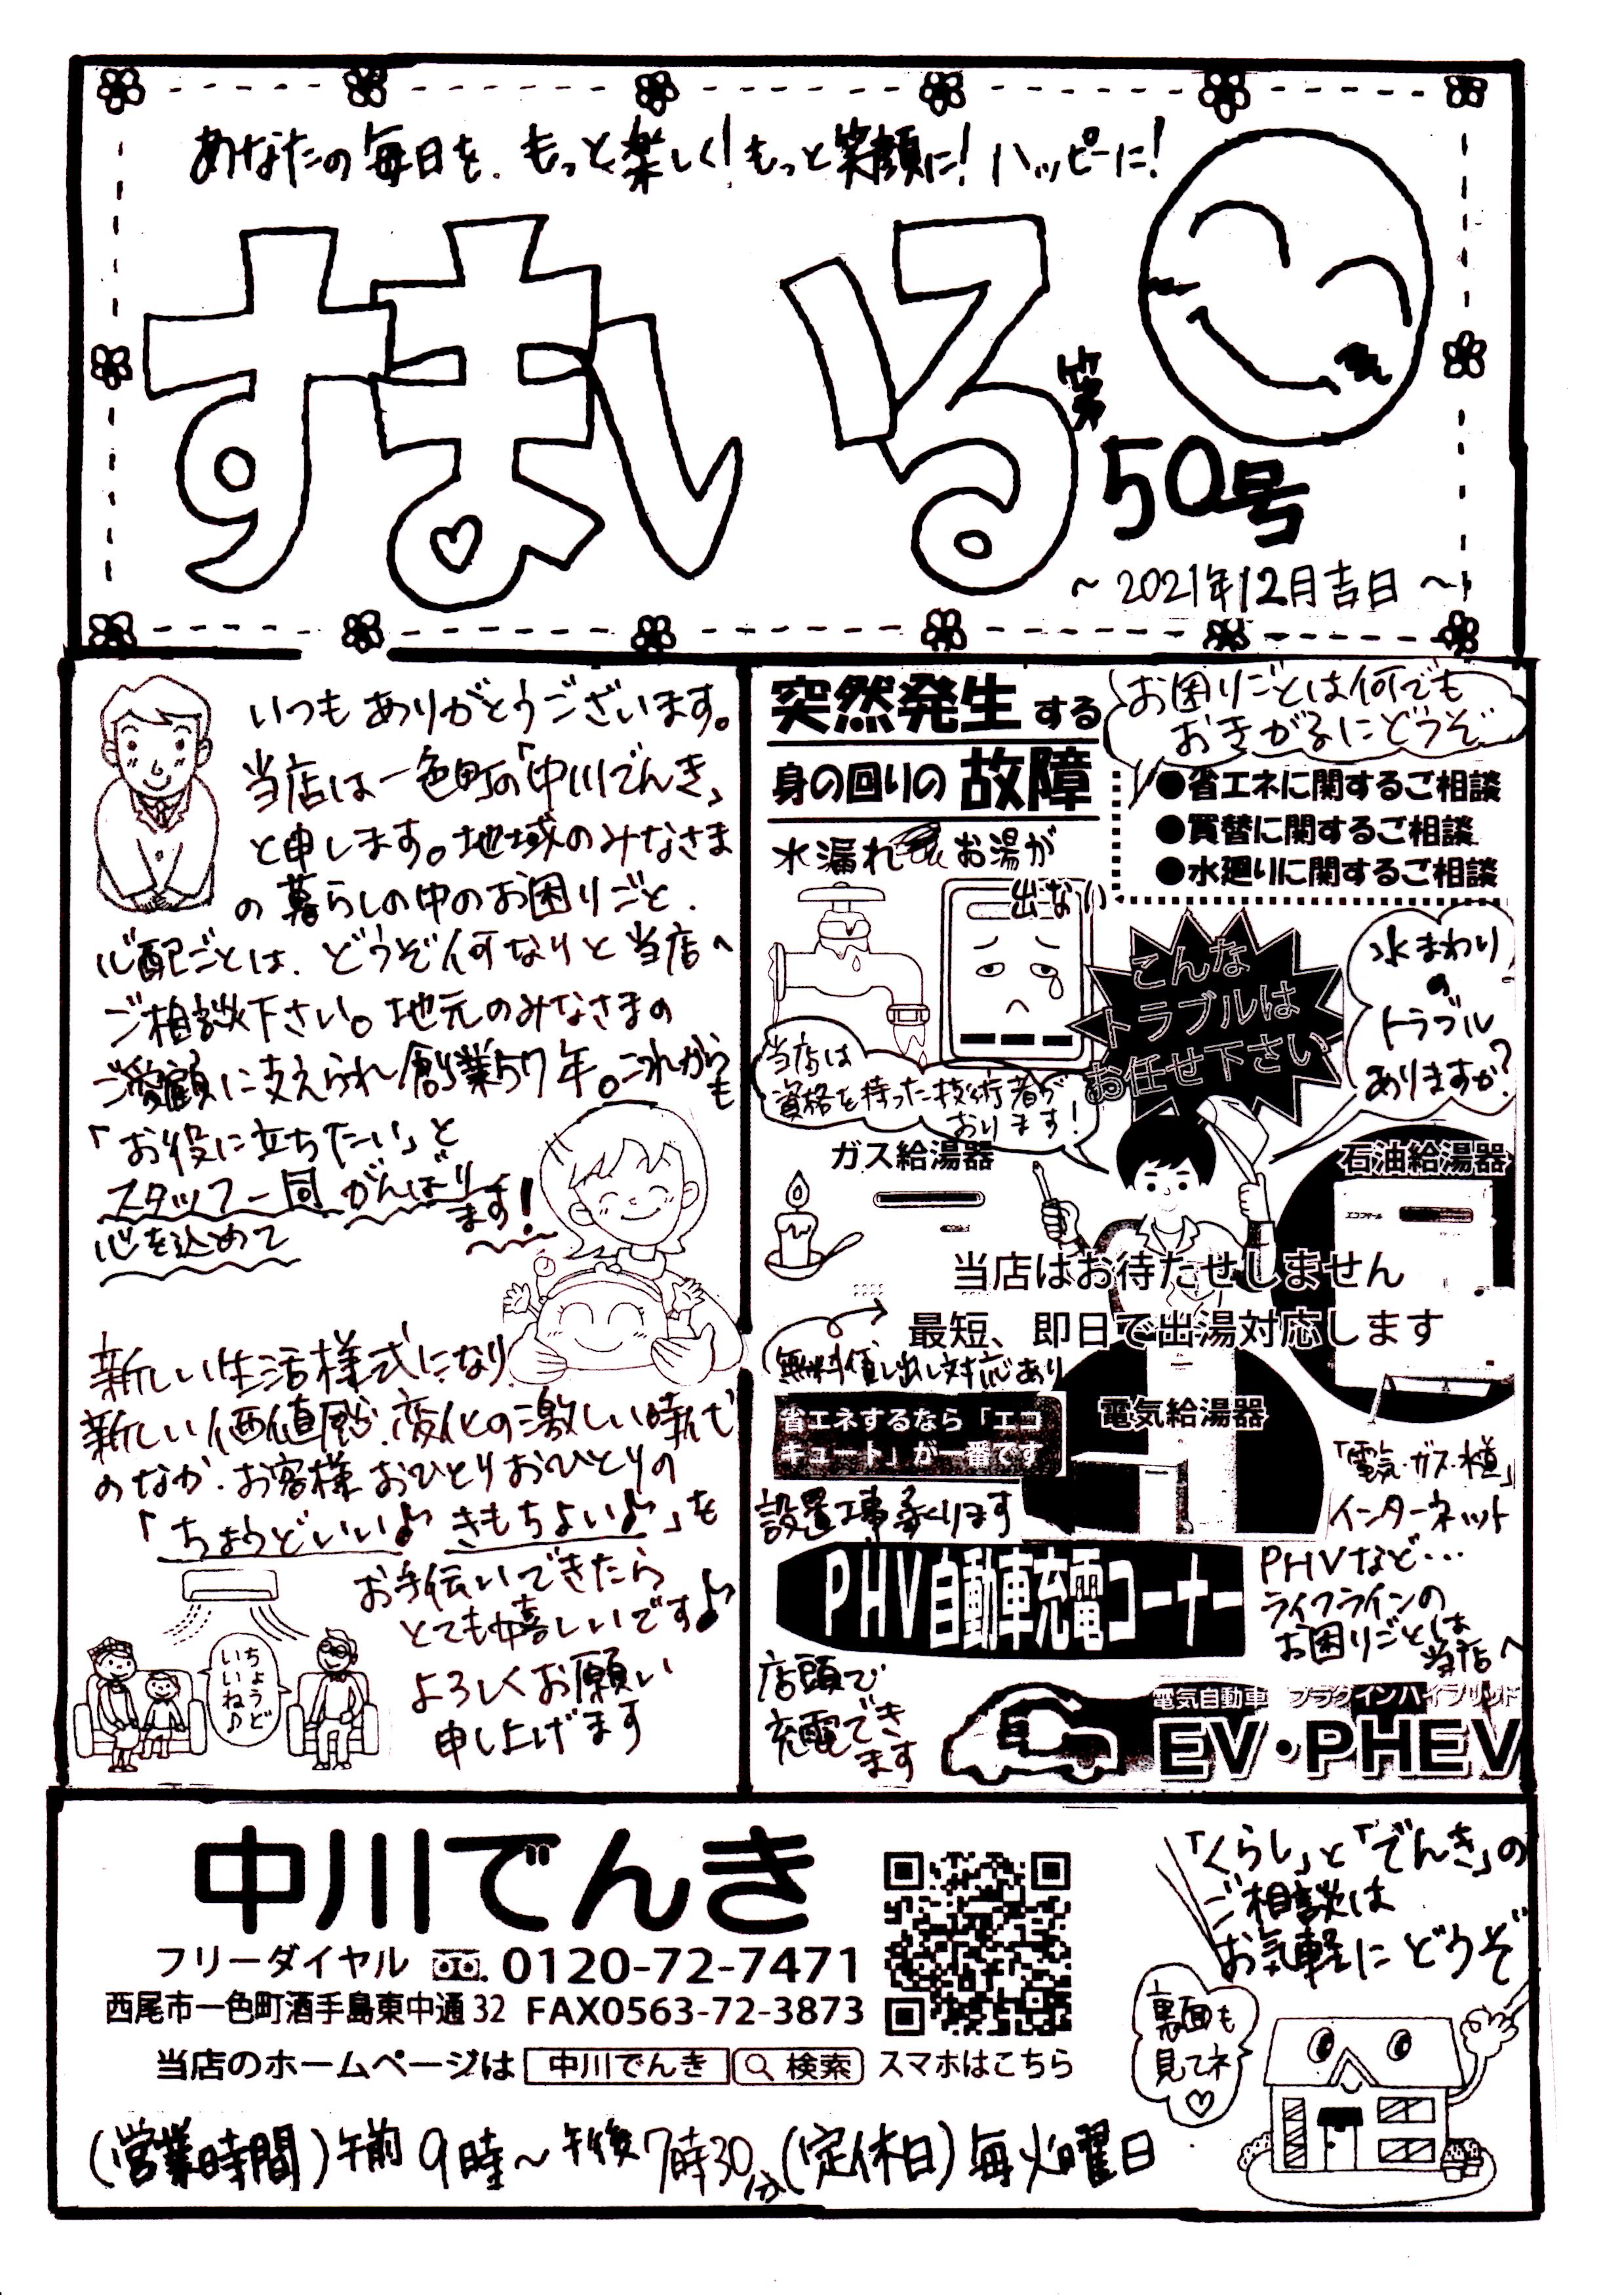 あなたの毎日を、もっと楽しく!もっと笑顔に!ハッピーに!
すまいる
第
50号
~2021年12月吉日~
いつもありがとうございます。
当店は一色町の「中川でんき」
と申します。地域のみなさま
の暮らしの中のお困りごと、
心配ごとは、どうぞ何なりと当店へ
ご相談下さい。地元のみなさまの
ご愛顧に支えられ創業57年。これからも
「お役に立ちたい」と
スタッフ一同がんばります!
心を込めて
新しい生活様式になり
新しい価値感、変化の激しい時代
のなか、お客様おひとりおひとりの
「ちょうどいい♪きもちよい♪」を
お手伝いできたら
とても嬉しいです♪
よろしくお願い
申し上げます
ちょうど
いいね♪
突然発生する
身の回りの故障
水漏れ
お湯が
出ない
お困りごとは何でも
おきがるにどうぞ
●省エネに関するご相談
●買替に関するご相談
●水廻りに関するご相談
こんな
トラブルは
お任せ下さい
水まわり
の
トラブル
ありますか?
当店は
資格を持った技術者が
おります!
ガス給湯器
石油給湯器
エコフィール
当店はお待たせしません
最短、即日で出湯対応します
無料貸し出し対応あり
省エネするなら「エコ
キュート」が一番です
電気給湯器
設置工事承ります
「電気・ガス・水道」
インターネット
PHVなど…
ライフラインの
お困りごとは
当店へ
PHV自動車充電コーナー
店頭で
充電でき
ます
電気自動車 プラグインハイブリッド
EV・PHEV
中川でんき
フリーダイヤル 0120-72-7471
西尾市一色町酒手島東中通32 FAX0563-72-3873
当店のホームページは 中川でんき 検索 スマホはこちら
「くらし」と「でんき」の
ご相談は
お気軽にどうぞ
裏面も
見てネ
♡
(営業時間)午前9時~午後7時30分(定休日)毎火曜日